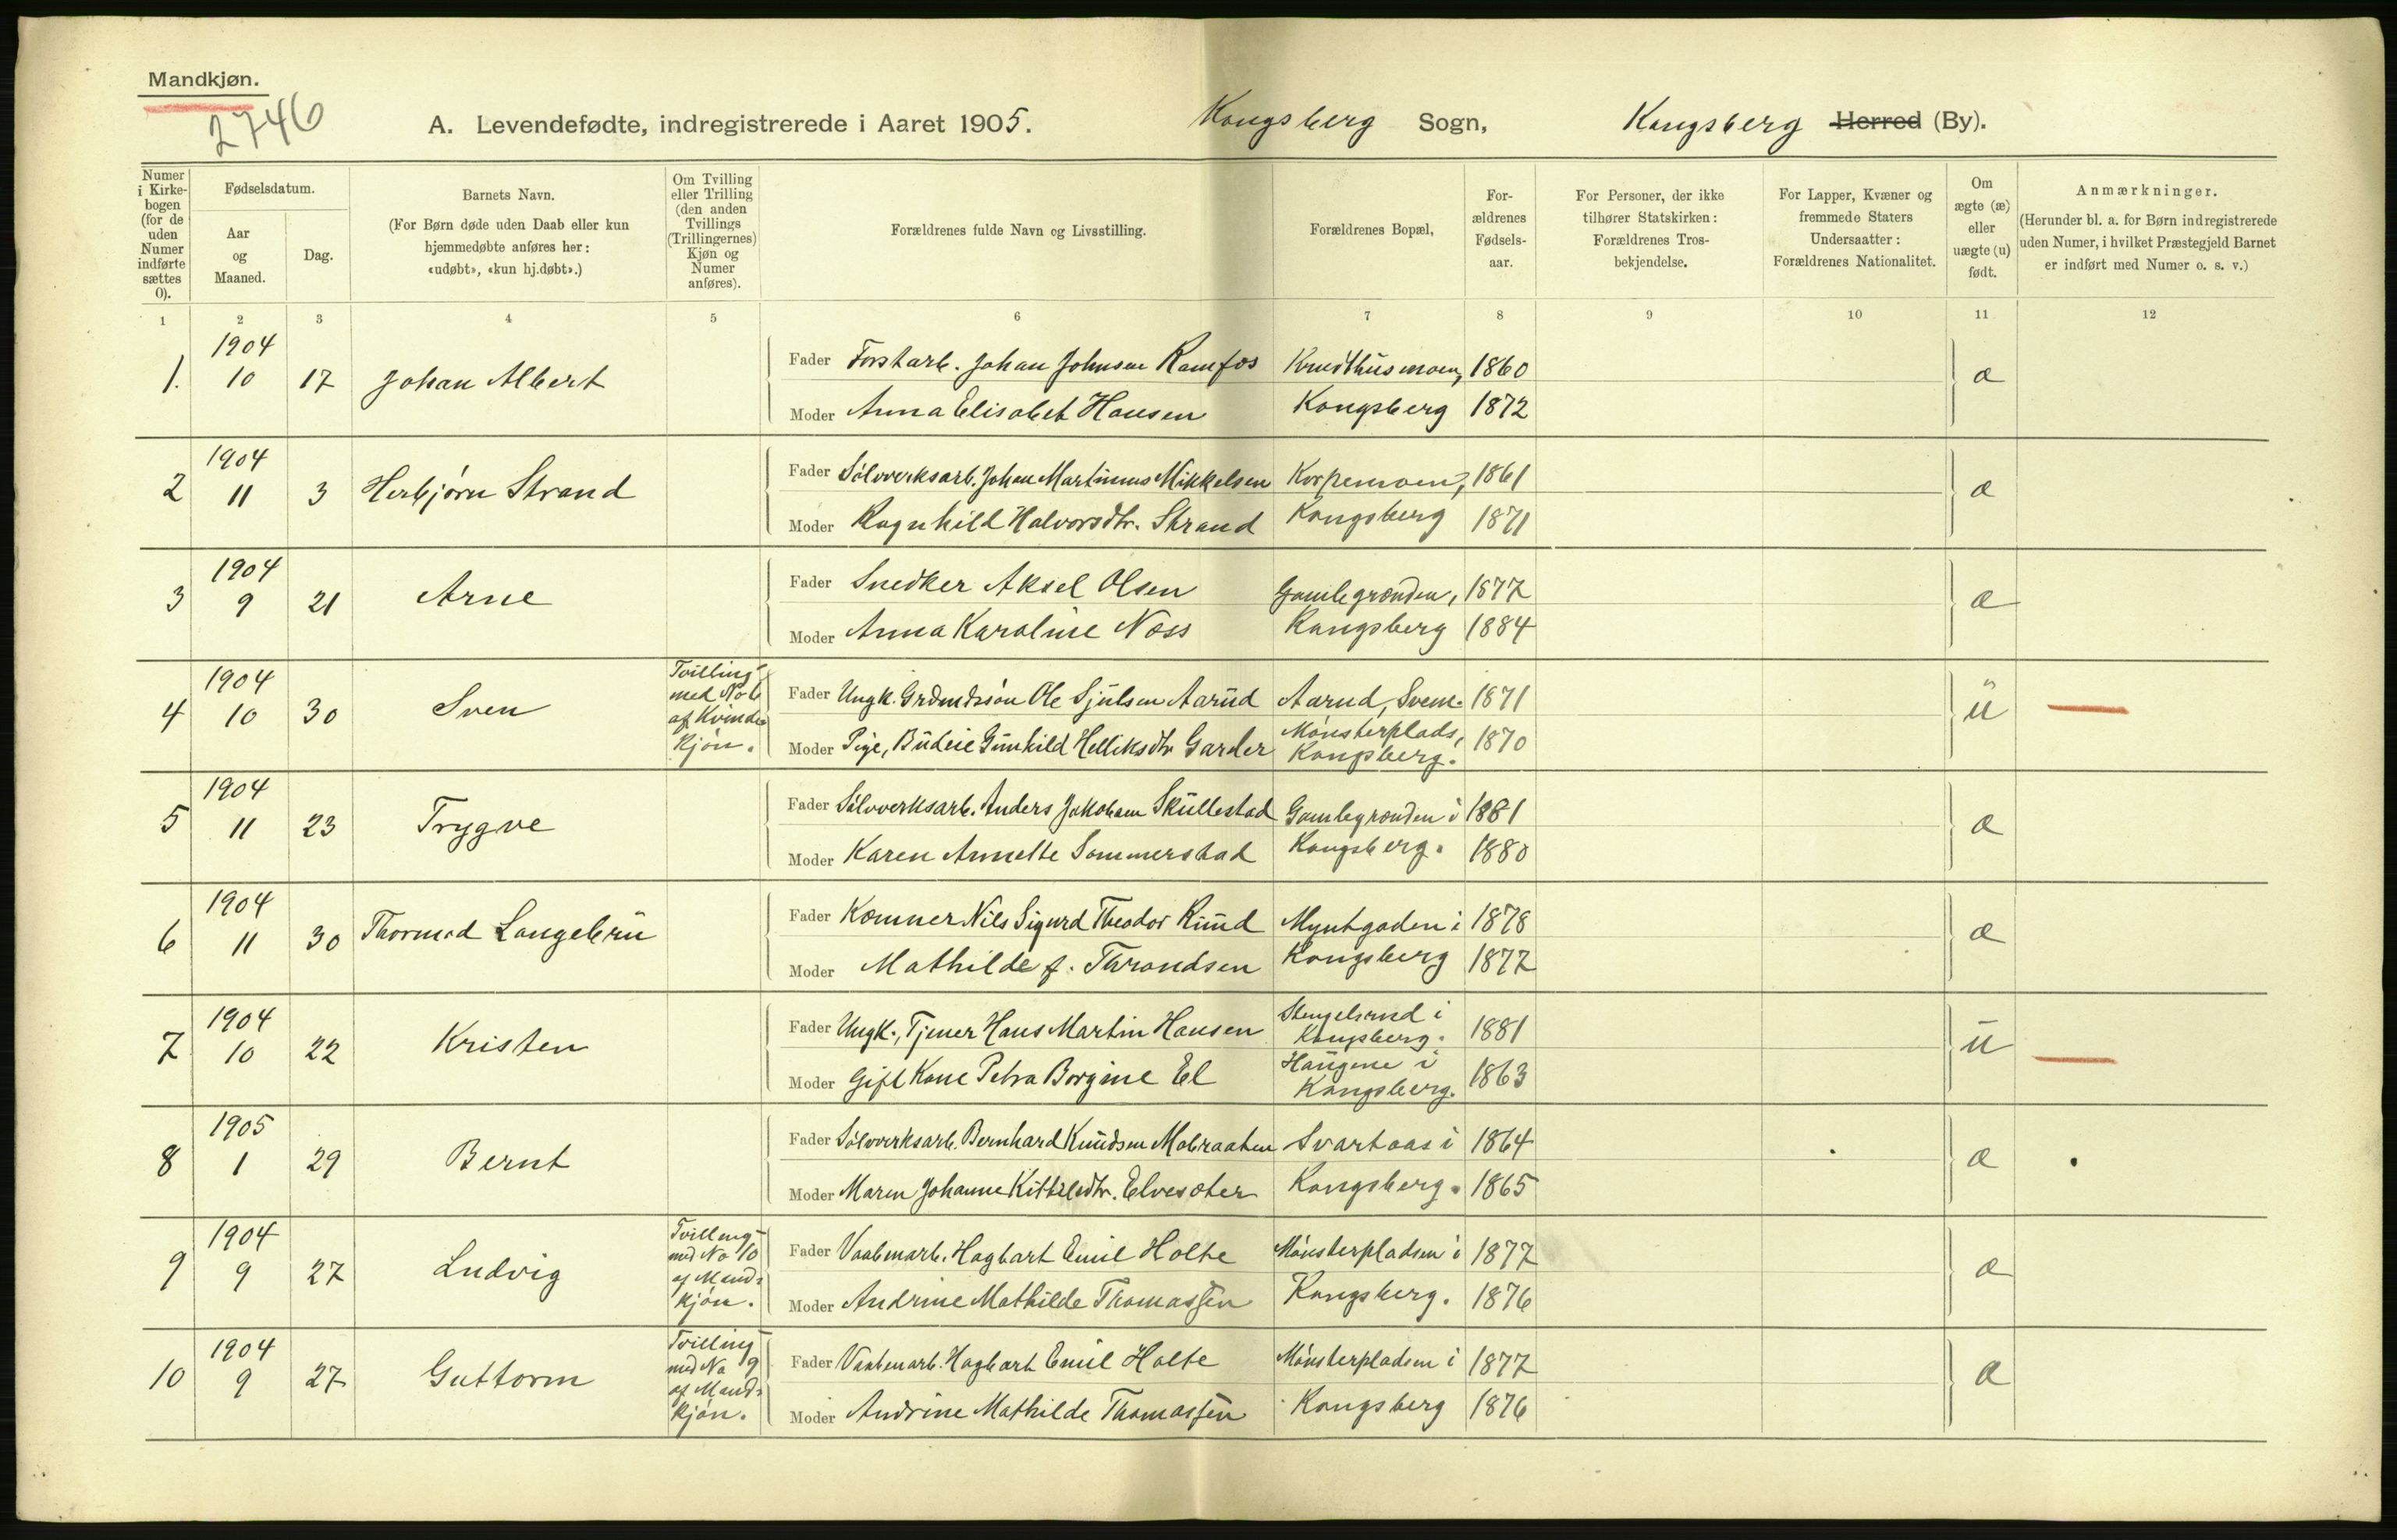 Mandkjøn.
2746
A. Levendefødte, indregistrerede i Aaret 1905. Kongsberg Sogn, Kongsberg Herred (By).
Numer i Kirkebogen (for de uden Numer indførte sættes 0).
Fødselsdatum.
Aar og Maaned.
Dag.
Barnets Navn.
(For Børn døde uden Daab eller kun hjemmedøbte anføres her: «udøbt», «kun hj.døbt».)
Om Tvilling eller Trilling (den anden Tvillings (Trillingernes) Kjøn og Numer anføres).
Forældrenes fulde Navn og Livsstilling.
Forældrenes Bopæl,
Forældrenes Fødselsaar.
For Personer, der ikke tilhører Statskirken: Forældrenes Trosbekjendelse.
For Lapper, Kvæner og fremmede Staters Undersaatter: Forældrenes Nationalitet.
Om ægte (æ) eller uægte (u) født.
Anmærkninger.
(Herunder bl. a. for Børn indregistrerede uden Numer, i hvilket Præstegjeld Barnet er indført med Numer o. s. v.)
1 2 3 4 5 6 7 8 9 10 11 12
1. 1904 10 17 Johan Albert
Fader Forstarb. Johan Johnsen Ramfos Knudthusmoen, 1860
Moder Anna Elisabet Hansen Kongsberg 1872
æ
2 1904 11 3 Herbjørn Strand
Fader Sølvverksarb. Johan Martinius Mikkelsen Korpemoen, 1861
Moder Ragnhild Halvorsdtr. Strand Kongsberg 1871
æ
3 1904 9 21 Arne
Fader Snedker Aksel Olsen Gamlegrænden, 1877
Moder Anna Karoline Næss Kongsberg 1884
æ
4 1904 10 30 Sven
Tvilling med No 6 af Kvindekjøn.
Fader Ungk. Grdmdssøn Ole Sjulsen Aarud Aarud, Svene. 1871
Moder Pige, Budeie Gunhild Helliksdtr Garder Mønsterplads, Kongsberg. 1870
u
5 1904 11 23 Trygve
Fader Sølvverksarb. Anders Jakobsen Skullestad Gamlegrænden i 1881
Moder Karen Annette Sommerstad Kongsberg. 1880
æ
6 1904 11 30 Thormod Langebru
Fader Kæmner Nils Sigurd Theodor Ruud Myntgaden i 1878
Moder Mathilde f. Throndsen Kongsberg 1877
æ
7 1904 10 22 Kristen
Fader Ungk., Tjener Hans Martin Hansen Stengelsrud i Kongsberg. 1881
Moder Gift Kone Petra Borgine El Haugene i Kongsberg. 1863
u
8 1905 1 29 Bernt
Fader Sølvverksarb. Bernhard Knudsen Mobraaten Svartaas i 1864
Moder Maren Johanne Kittilsdtr. Elvesæter Kongsberg. 1865
æ
9 1904 9 27 Ludvig
Tvilling med No 10 af Mandkjøn.
Fader Vaabenarb. Hagbart Emil Holte Mønsterpladsen i 1877
Moder Andrine Mathilde Thomassen Kongsberg. 1876
æ
10 1904 9 27 Guttorm
Tvilling med No 9 af Mandkjøn.
Fader Vaabenarb. Hagbart Emil Holte Mønsterpladsen i 1877
Moder Andrine Mathilde Thomassen Kongsberg 1876
æ